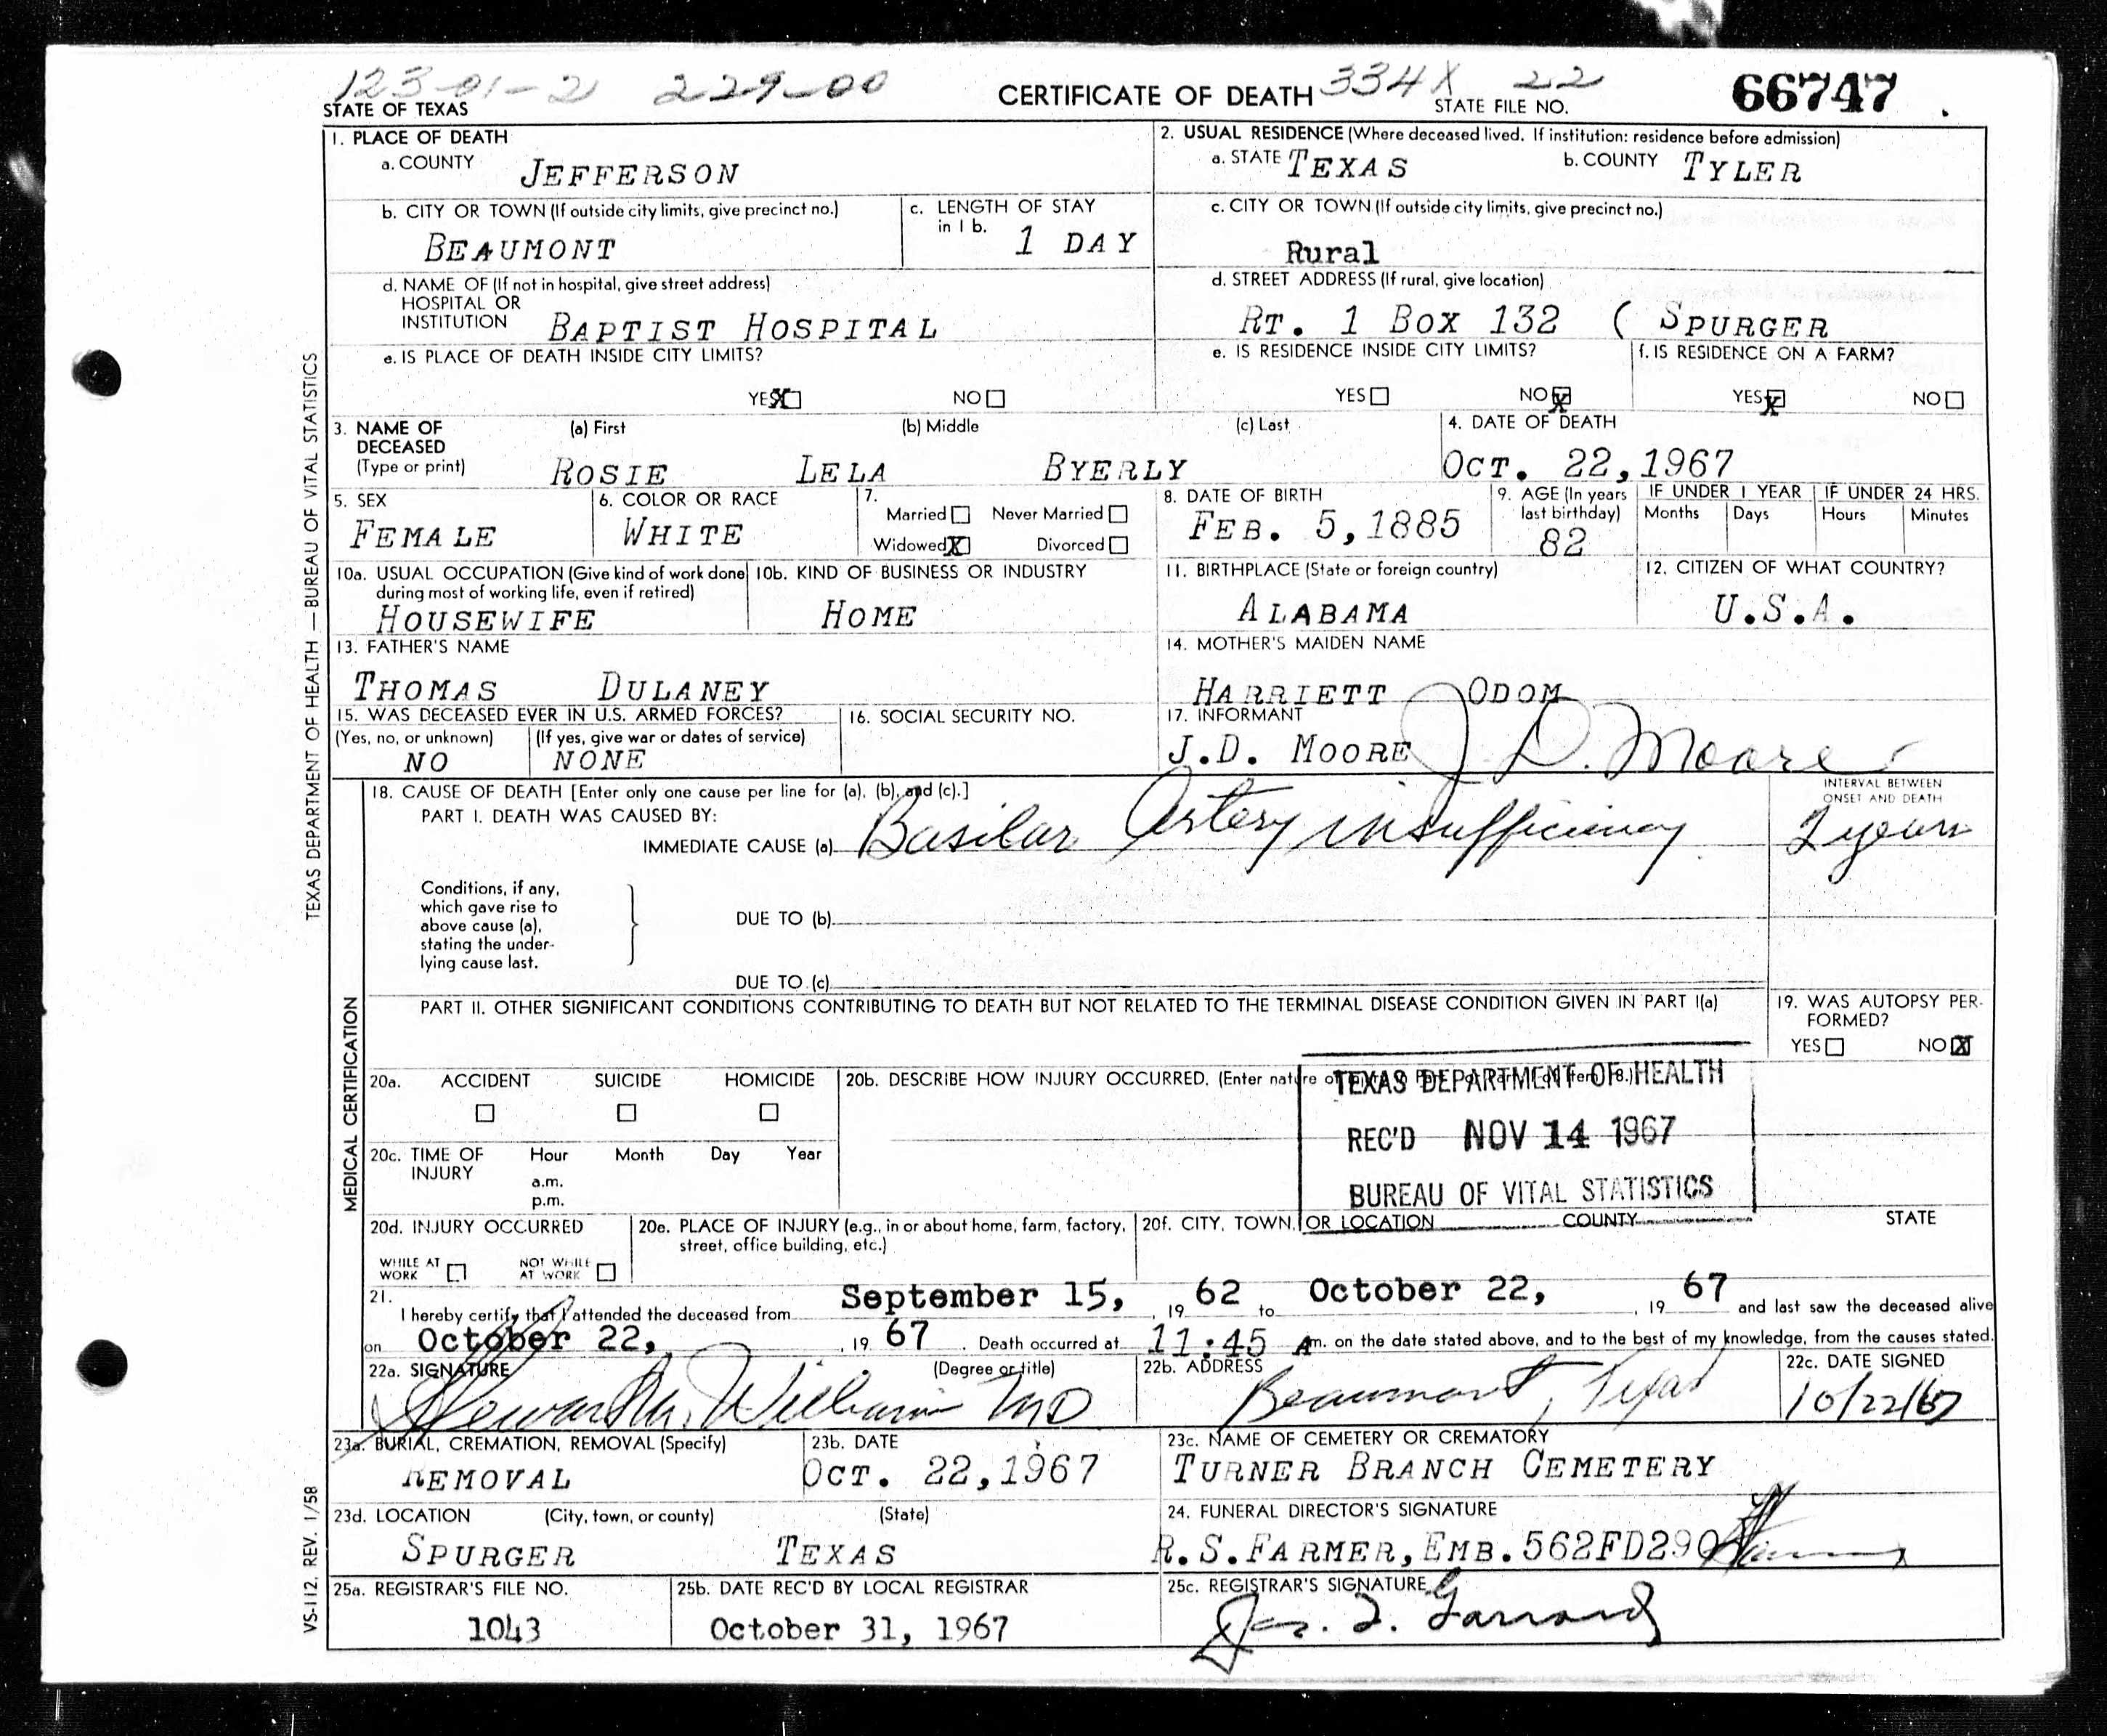 123-01-2 229-00 334X 22
STATE OF TEXAS CERTIFICATE OF DEATH STATE FILE NO. 66747
1. PLACE OF DEATH
a. COUNTY JEFFERSON
2. USUAL RESIDENCE (Where deceased lived. If institution: residence before admission)
a. STATE TEXAS b. COUNTY TYLER
b. CITY OR TOWN (If outside city limits, give precinct no.)
BEAUMONT
c. LENGTH OF STAY in 1 b. 1 DAY
c. CITY OR TOWN (If outside city limits, give precinct no.)
Rural
d. NAME OF (If not in hospital, give street address)
HOSPITAL OR
INSTITUTION BAPTIST HOSPITAL
d. STREET ADDRESS (If rural, give location)
RT. 1 BOX 132 ( SPURGER
e. IS PLACE OF DEATH INSIDE CITY LIMITS?
YES X NO
e. IS RESIDENCE INSIDE CITY LIMITS?
YES NO X
f. IS RESIDENCE ON A FARM?
YES X NO
3. NAME OF DECEASED (Type or print)
(a) First (b) Middle (c) Last
ROSIE LELA BYERLY
4. DATE OF DEATH
OCT. 22,1967
5. SEX
FEMALE
6. COLOR OR RACE
WHITE
7.
Married Never Married
Widowed X Divorced
8. DATE OF BIRTH
FEB. 5,1885
9. AGE (In years last birthday)
82
IF UNDER 1 YEAR IF UNDER 24 HRS.
Months Days Hours Minutes
10a. USUAL OCCUPATION (Give kind of work done during most of working life, even if retired)
HOUSEWIFE
10b. KIND OF BUSINESS OR INDUSTRY
HOME
11. BIRTHPLACE (State or foreign country)
ALABAMA
12. CITIZEN OF WHAT COUNTRY?
U.S.A.
13. FATHER'S NAME
THOMAS DULANEY
14. MOTHER'S MAIDEN NAME
HARRIETT ODOM
15. WAS DECEASED EVER IN U.S. ARMED FORCES?
(Yes, no, or unknown) (If yes, give war or dates of service)
NO NONE
16. SOCIAL SECURITY NO.
17. INFORMANT
J.D. MOORE J D. Moore
18. CAUSE OF DEATH [Enter only one cause per line for (a), (b), and (c).]
PART I. DEATH WAS CAUSED BY:
IMMEDIATE CAUSE (a) Basilar Artery insufficiency
INTERVAL BETWEEN
ONSET AND DEATH
2 years
Conditions, if any,
which gave rise to
above cause (a),
stating the under-
lying cause last.
DUE TO (b)
DUE TO (c)
PART II. OTHER SIGNIFICANT CONDITIONS CONTRIBUTING TO DEATH BUT NOT RELATED TO THE TERMINAL DISEASE CONDITION GIVEN IN PART I(a)
19. WAS AUTOPSY PER-
FORMED?
YES NO X
20a. ACCIDENT SUICIDE HOMICIDE
20b. DESCRIBE HOW INJURY OCCURRED. (Enter nature
TEXAS DEPARTMENT OF HEALTH
REC'D NOV 14 1967
BUREAU OF VITAL STATISTICS
20c. TIME OF INJURY Hour Month Day Year
a.m.
p.m.
20d. INJURY OCCURRED
WHILE AT WORK NOT WHILE AT WORK
20e. PLACE OF INJURY (e.g., in or about home, farm, factory,
street, office building, etc.)
20f. CITY, TOWN, OR LOCATION COUNTY STATE
21.
I hereby certify that I attended the deceased from September 15, , 19 62 to October 22, , 19 67 and last saw the deceased alive
on October 22, , 19 67 . Death occurred at 11:45 A m. on the date stated above, and to the best of my knowledge, from the causes stated.
22a. SIGNATURE (Degree or title)
Williams MD
22b. ADDRESS
Beaumont, Texas
22c. DATE SIGNED
10/22/67
23a. BURIAL, CREMATION, REMOVAL (Specify)
REMOVAL
23b. DATE
OCT. 22,1967
23c. NAME OF CEMETERY OR CREMATORY
TURNER BRANCH CEMETERY
23d. LOCATION (City, town, or county) (State)
SPURGER TEXAS
24. FUNERAL DIRECTOR'S SIGNATURE
R.S.FARMER,EMB.562FD290
25a. REGISTRAR'S FILE NO.
1043
25b. DATE REC'D BY LOCAL REGISTRAR
October 31, 1967
25c. REGISTRAR'S SIGNATURE
TEXAS DEPARTMENT OF HEALTH — BUREAU OF VITAL STATISTICS
MEDICAL CERTIFICATION
VS-112, REV. 1/58